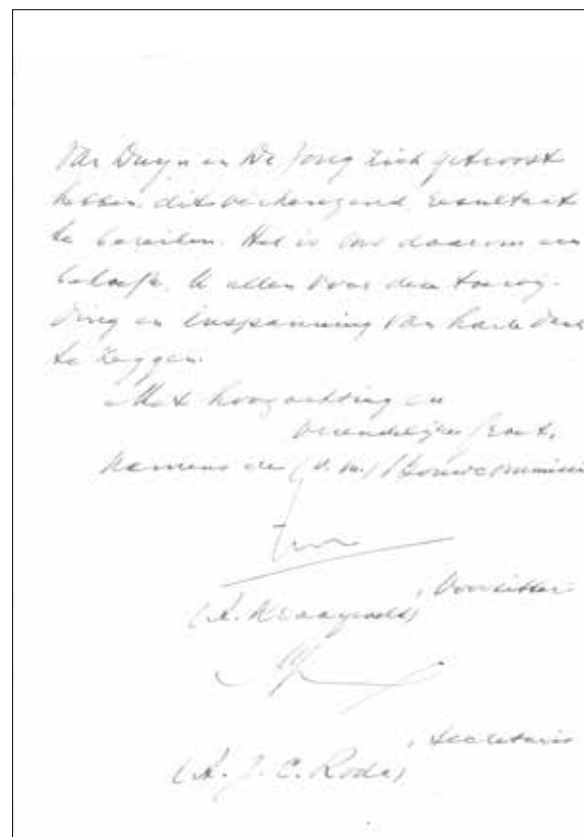 Van Duyn en De Jong zich getroost
hebben dit verheugend resultaat
te bereiken. Het is ons daarom een
behoefte, U allen voor deze toewij-
ding en inspanning van harte dank
te zeggen.
Met hoogachting en
vriendelijke groet,
Namens de (v.m.) Bouwcommissie
, Voorzitter
(A.
, Secretaris
(A. J. C. Rode)